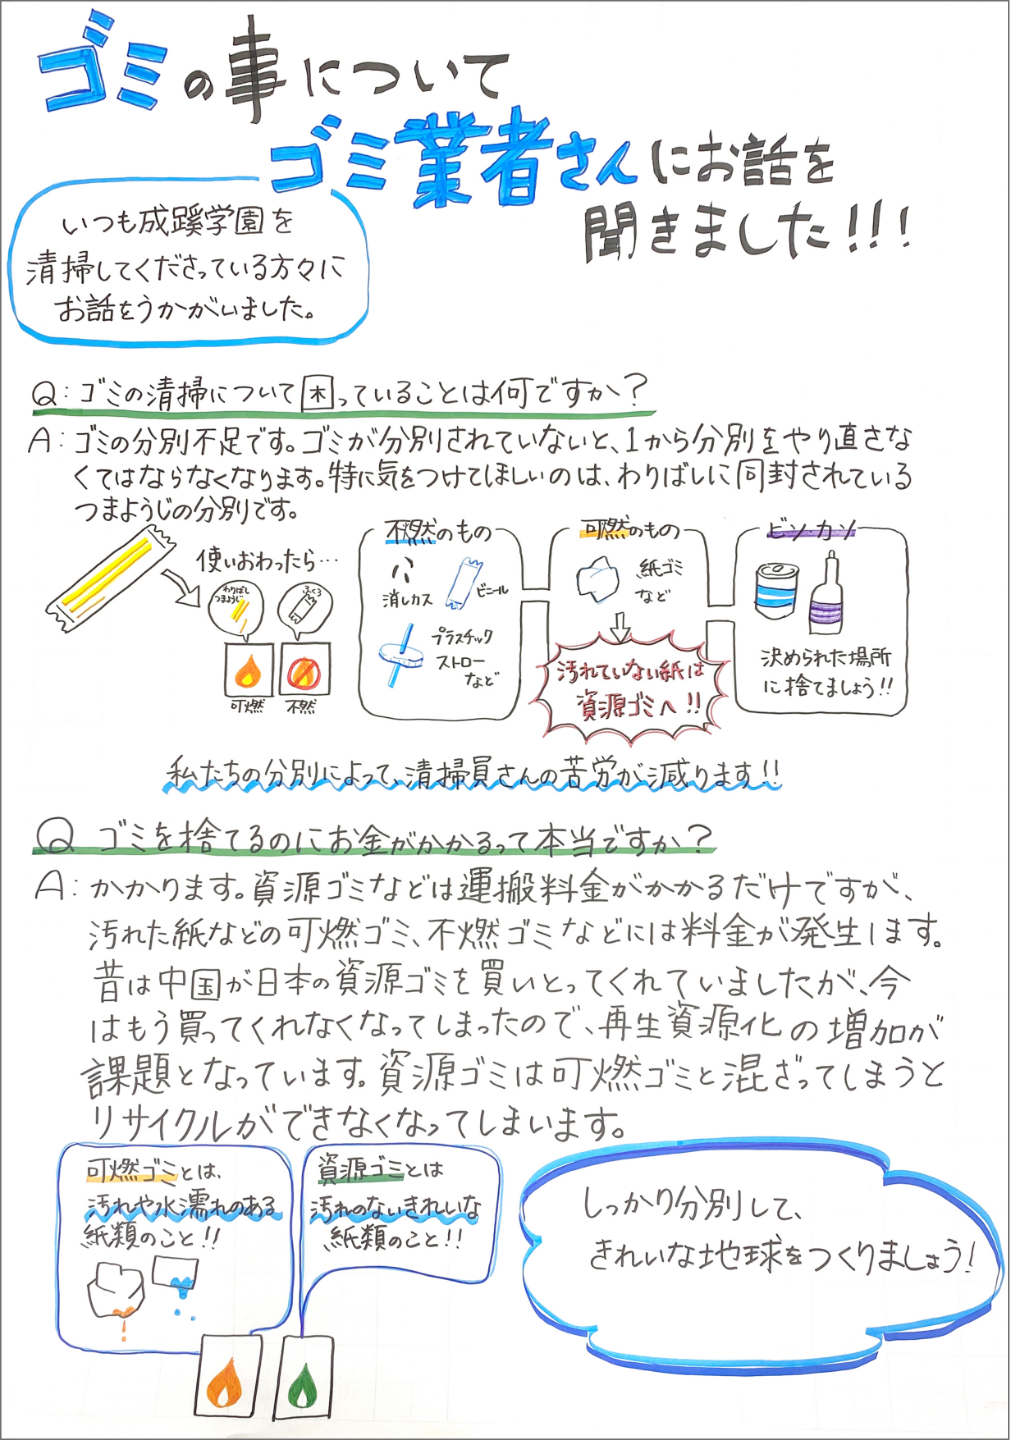 ゴミの事について
ゴミ業者さんにお話を
聞きました!!!
いつも成蹊学園を
清掃してくださっている方々に
お話をうかがいました。
Q:ゴミの清掃について困っていることは何ですか?
A:ゴミの分別不足です。ゴミが分別されていないと、1から分別をやり直さな
くてはならなくなります。特に気をつけてほしいのは、わりばしに同封されている
つまようじの分別です。
使いおわったら…
わりばし
つまようじ
ふくろ
可燃
不燃
不燃のもの
消しカス
ビニール
プラスチック
ストロー
など
可燃のもの
紙ゴミ
など
汚れていない紙は
資源ゴミへ!!
ビンカン
決められた場所
に捨てましょう!!
私たちの分別によって、清掃員さんの苦労が減ります!!
Q ゴミを捨てるのにお金がかかるって本当ですか?
A:かかります。資源ゴミなどは運搬料金がかかるだけですが、
汚れた紙などの可燃ゴミ、不燃ゴミなどには料金が発生します。
昔は中国が日本の資源ゴミを買いとってくれていましたが、今
はもう買ってくれなくなってしまったので、再生資源化の増加が
課題となっています。資源ゴミは可燃ゴミと混ざってしまうと
リサイクルができなくなってしまいます。
可燃ゴミとは、
汚れや水濡れのある
紙類のこと!!
資源ゴミとは
汚れのないきれいな
紙類のこと!!
しっかり分別して、
きれいな地球をつくりましょう!